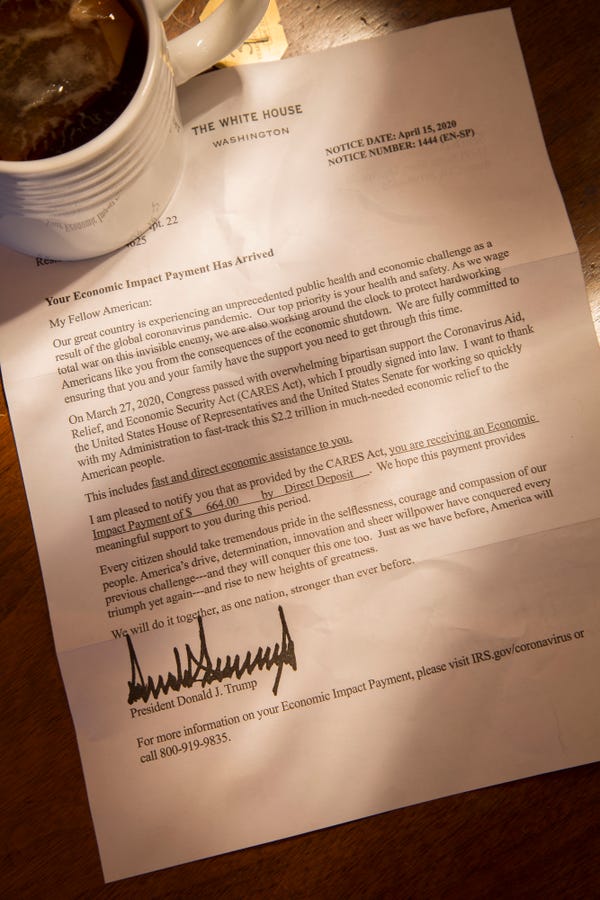 THE WHITE HOUSE
WASHINGTON
NOTICE DATE: April 15, 2020
NOTICE NUMBER: 1444 (EN-SP)
pt. 22
Your Economic Impact Payment Has Arrived
My Fellow American:
Our great country is experiencing an unprecedented public health and economic challenge as a
result of the global coronavirus pandemic. Our top priority is your health and safety. As we wage
total war on this invisible enemy, we are also working around the clock to protect hardworking
Americans like you from the consequences of the economic shutdown. We are fully committed to
ensuring that you and your family have the support you need to get through this time.
On March 27, 2020, Congress passed with overwhelming bipartisan support the Coronavirus Aid,
Relief, and Economic Security Act (CARES Act), which I proudly signed into law. I want to thank
the United States House of Representatives and the United States Senate for working so quickly
with my Administration to fast-track this $2.2 trillion in much-needed economic relief to the
American people.
This includes fast and direct economic assistance to you.
I am pleased to notify you that as provided by the CARES Act, you are receiving an Economic
Impact Payment of $ 664.00 by Direct Deposit . We hope this payment provides
meaningful support to you during this period.
Every citizen should take tremendous pride in the selflessness, courage and compassion of our
people. America's drive, determination, innovation and sheer willpower have conquered every
previous challenge---and they will conquer this one too. Just as we have before, America will
triumph yet again---and rise to new heights of greatness.
We will do it together, as one nation, stronger than ever before.
President Donald J. Trump
For more information on your Economic Impact Payment, please visit IRS.gov/coronavirus or
call 800-919-9835.